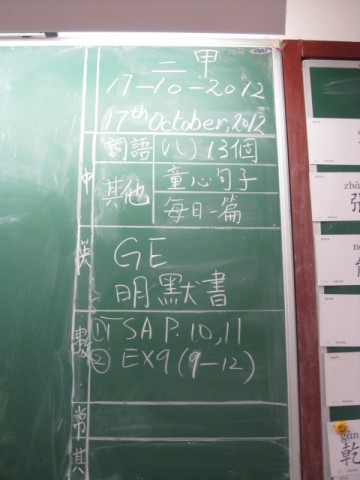 二甲
17-10-2012
17th October, 2012
中 詞語 (八) 13個
其他 童心句子
每日一篇
英 GE
明默書
數 ① SA P.10,11
② EX9 (9-12)
常
其
zhū
gān
乾